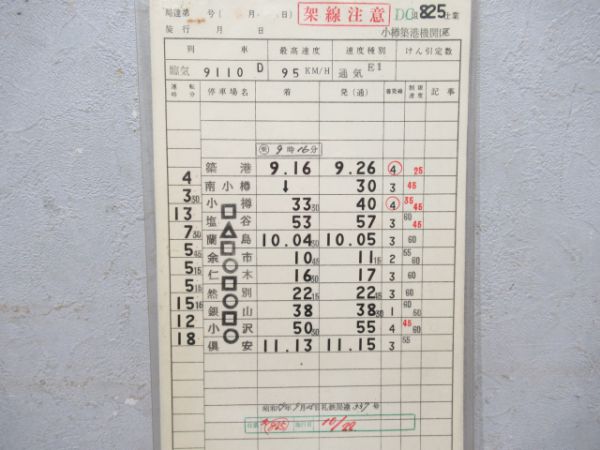 局達第 号( . . ) 架線注意 DC 825 仕業
施行 月 日 小樽築港機関区
列車 最高速度 速度種別 けん引定数
臨気 9110D 95 KM/H 通気E1
運転時分 停車場名 着 発(通) 着発線 制限速度 記事
9時16分
築港 9.16 9.26 4 25
4
南小樽 ↓ 30 3 45
3 30
小樽 33 30 40 4 35 45
13
塩谷 53 57 3 60 45
7 30
蘭島 10.04 30 10.05 3 60
5 45
余市 10 45 11 15 2 55 60
5 15
仁木 16 30 17 3 60
5 15
然別 22 15 22 15 3 60
15 15
銀山 38 38 30 1 60
12
小沢 50 30 55 4 45 60
18
倶安 11.13 11.15 3 55
昭和 年 月 日札鉄局達 337号
825 施行日 10/22